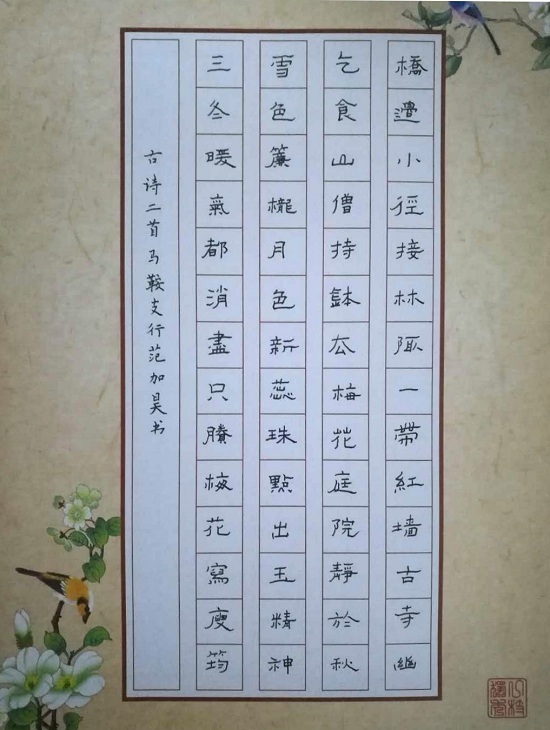 橋邊小徑接林陬一帶紅墻古寺幽
乞食山僧持鉢厺梅花庭院靜於秋
雪色簾櫳月色新蕊珠點出玉精神
三冬暖氣都消盡只賸梅花寫瘦筠
古诗二首马鞍支行范加昊书